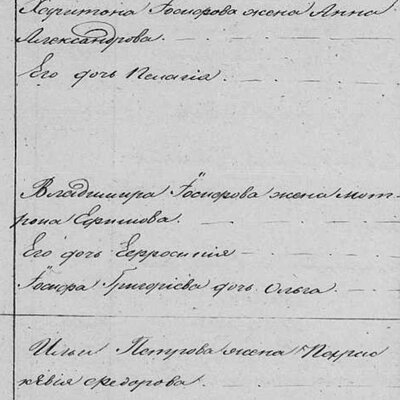 Харитона Іосифова жена Анна
Александрова.
Его дочь Пелагія.
Владимира Іосифова жена мот-
рона Ефимова.
Его дочь Евфросинія
Іосифа Григоріева дочь Ольга.
Ильи Петрова жена Парас
кѣвія Федорова.